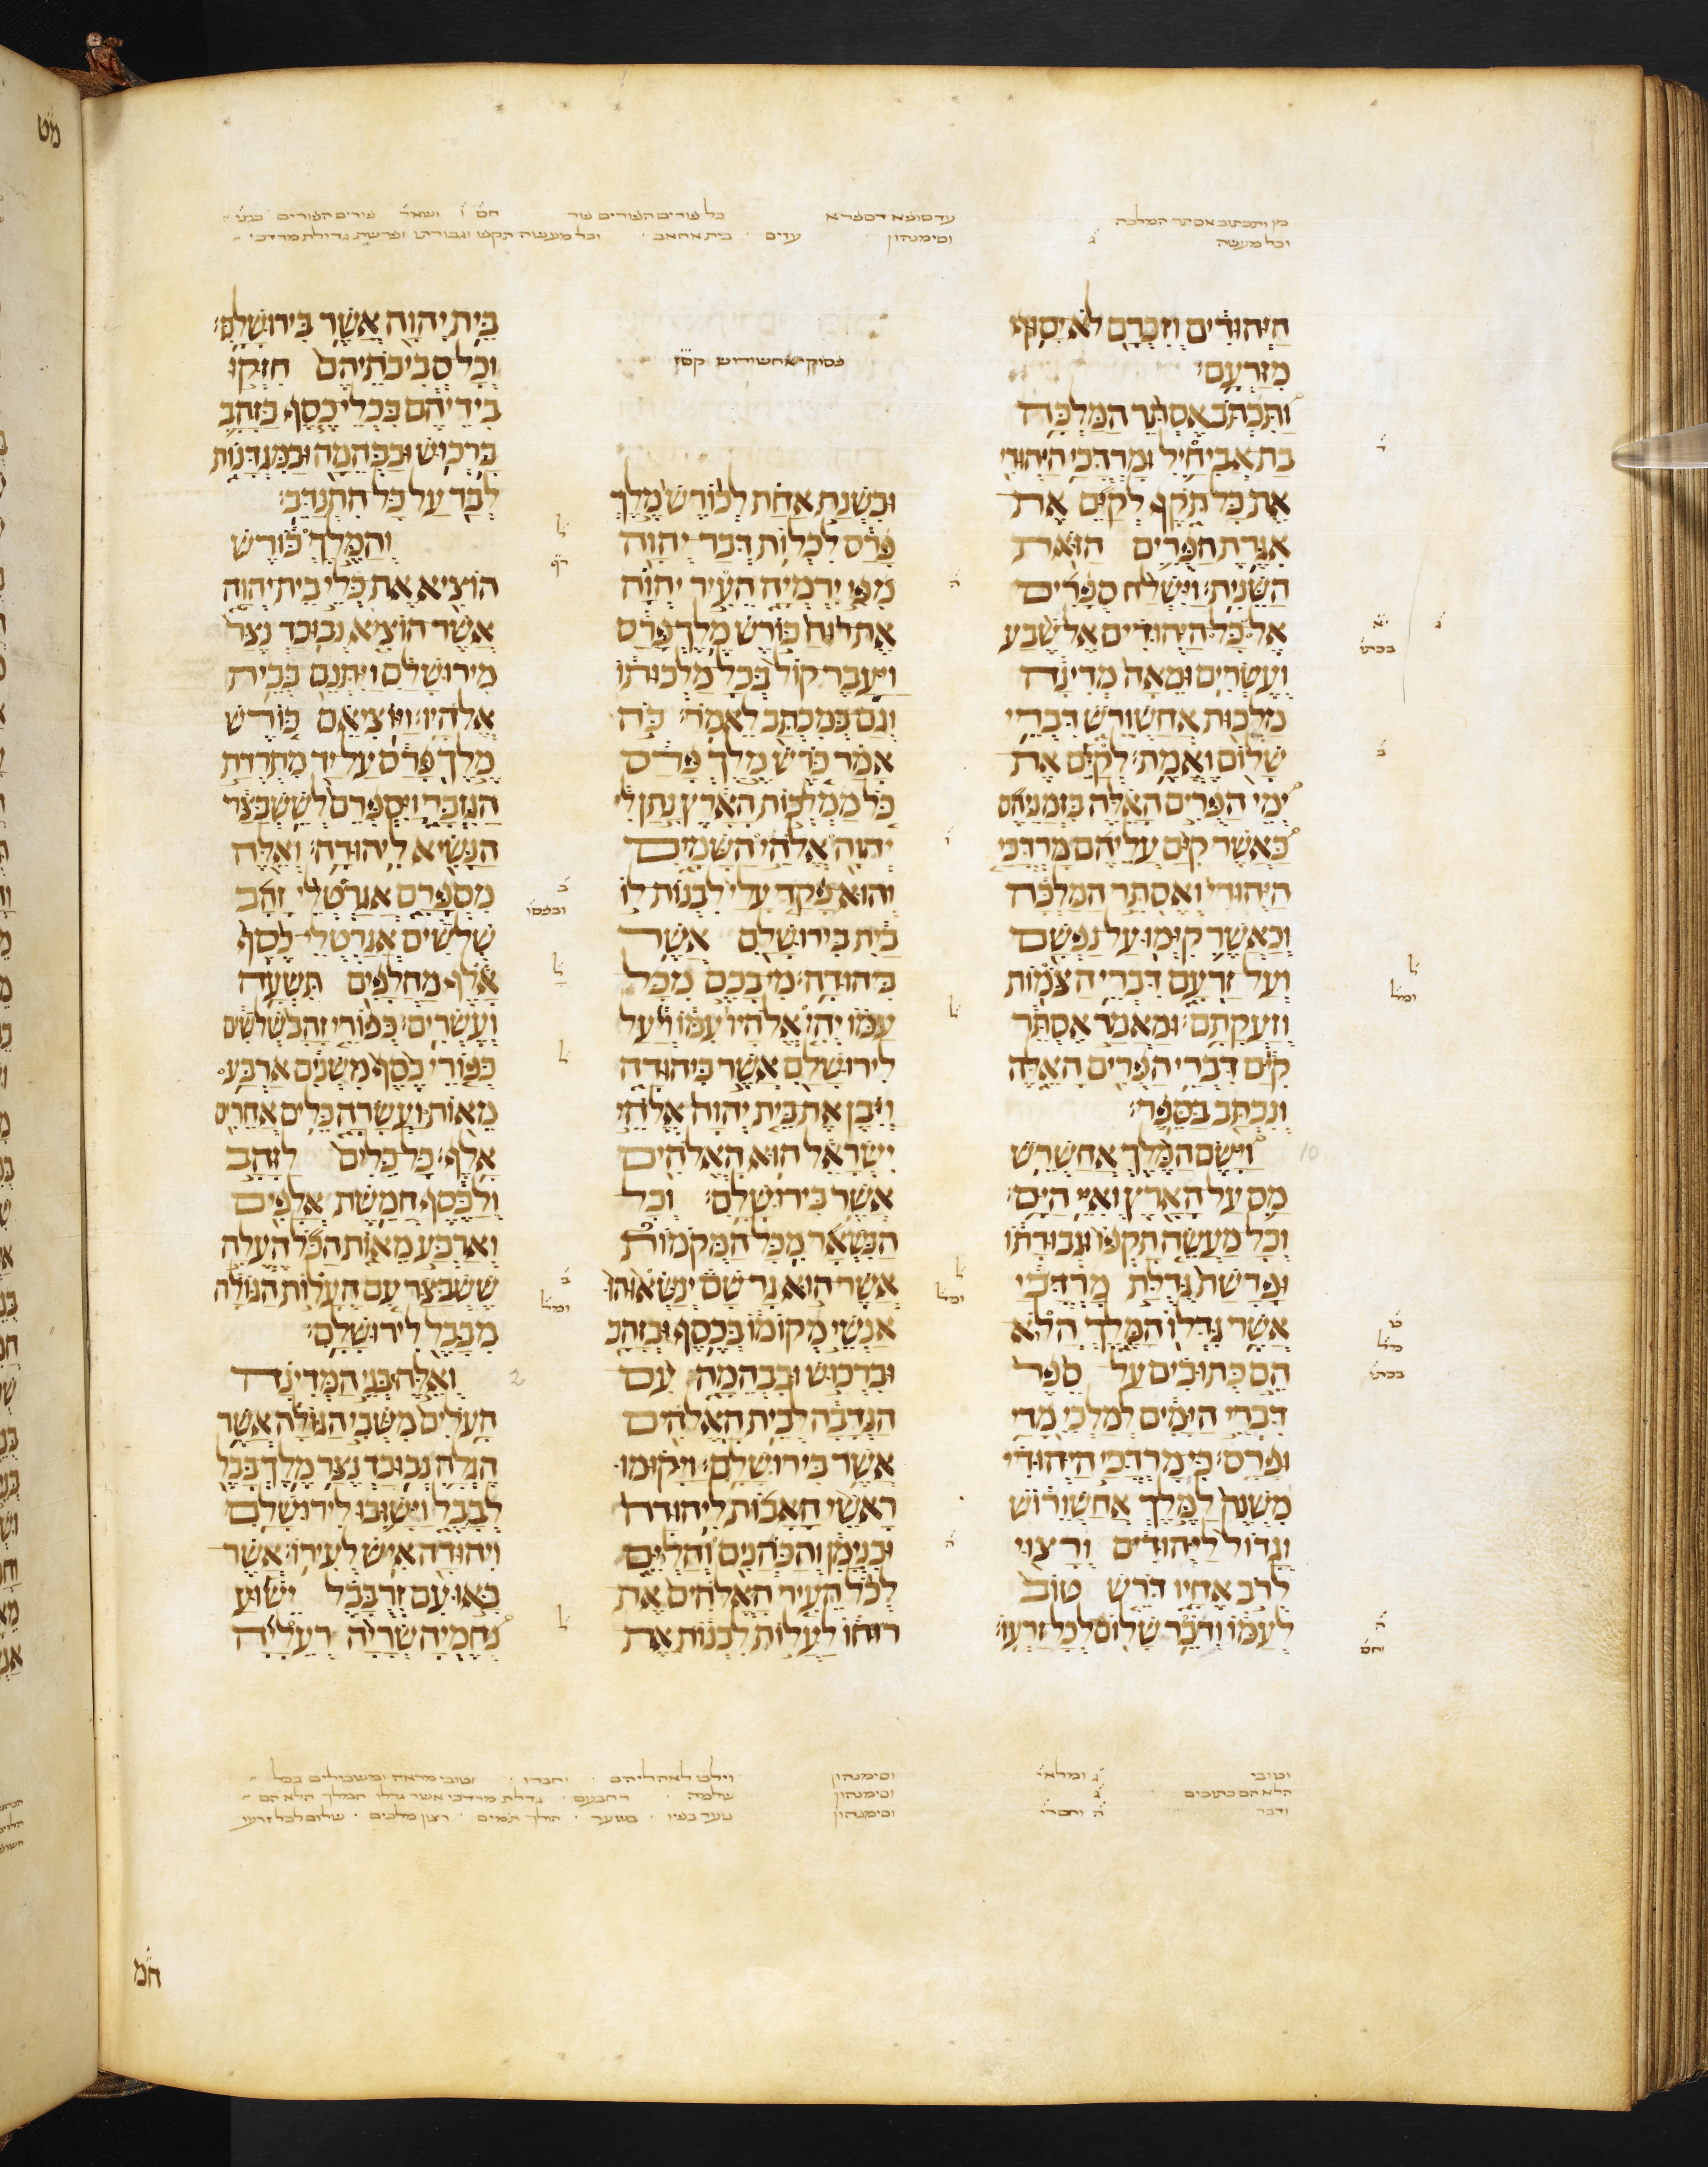 מן ותכתוב אסתר המלכה עד סופא דספרא כל פורים הפורים פור חס ו ושאר פורים הפורים
וכל מעשה ג וסימנהון עזים בית אחאב וכל מעשה תקפו וגבורתו ופרשת גדולת מרדכי
היהודים וזכרם לא יסוף
מזרעם׃
ותכתב אסתר המלכה
בת אביחיל ומרדכי היהודי
את כל תקף לקים את
אגרת הפרים הזאת
השנית׃ וישלח ספרים
אל כל היהודים אל שבע
ועשרים ומאה מדינה
מלכות אחשורש דברי
שלום ואמת׃ לקים את
ימי הפרים האלה בזמניהם
כאשר קים עליהם מרדכי
היהודי ואסתר המלכה
וכאשר קימו על נפשם
ועל זרעם דברי הצמות
וזעקתם׃ ומאמר אסתר
קים דברי הפרים האלה
ונכתב בספר׃
וישם המלך אחשרש
מס על הארץ ואיי הים׃
וכל מעשה תקפו וגבורתו
ופרשת גדלת מרדכי
אשר גדלו המלך הלא
הם כתובים על ספר
דברי הימים למלכי מדי
ופרס׃ כי מרדכי היהודי
משנה למלך אחשורוש
וגדול ליהודים ורצוי
לרב אחיו דרש טוב
לעמו ודבר שלום לכל זרעו׃
פסוקי אחשורוש קסז
ובשנת אחת לכורש מלך
פרס לכלות דבר יהוה
מפי ירמיה העיר יהוה
את רוח כורש מלך פרס
ויעבר קול בכל מלכותו
וגם במכתב לאמר׃ כה
אמר כרש מלך פרס
כל ממלכות הארץ נתן לי
יהוה אלהי השמים
והוא פקד עלי לבנות לו
בית בירושלם אשר
ביהודה׃ מי בכם מכל
עמו יהי אלהיו עמו ויעל
לירושלם אשר ביהודה
ויבן את בית יהוה אלהי
ישראל הוא האלהים
אשר בירושלם׃ וכל
הנשאר מכל המקמות
אשר הוא גר שם ינשאוהו
אנשי מקומו בכסף ובזהב
וברכוש ובבהמה עם
הנדבה לבית האלהים
אשר בירושלם׃ ויקומו
ראשי האבות ליהודה
ובנימן והכהנים והלוים
לכל העיר האלהים את
רוחו לעלות לבנות את
בית יהוה אשר בירושלם׃
וכל סביבתיהם חזקו
בידיהם בכלי כסף בזהב
ברכוש ובבהמה ובמגדנות
לבד על כל התנדב׃
והמלך כורש
הוציא את כלי בית יהוה
אשר הוציא נבוכדנצר
מירושלם ויתנם בבית
אלהיו׃ ויוציאם כורש
מלך פרס על יד מתרדת
הגזבר ויספרם לששבצר
הנשיא ליהודה׃ ואלה
מספרם אגרטלי זהב
שלשים אגרטלי כסף
אלף מחלפים תשעה
ועשרים׃ כפורי זהב שלשים
כפורי כסף משנים ארבע
מאות ועשרה כלים אחרים
אלף׃ כל כלים לזהב
ולכסף חמשת אלפים
וארבע מאות הכל העלה
ששבצר עם העלות הגולה
מבבל לירושלם׃
ואלה בני המדינה
העלים משבי הגולה אשר
הגלה נבוכדנצר מלך בבל
לבבל וישובו לירושלם
ויהודה איש לעירו׃ אשר
באו עם זרבבל ישוע
נחמיה שריה רעליה
וטובי ג ומלאי וסימנהון וילט לאהליהם וחברו וטובי מראה ומשכילים בכל
הלא הם כתובים ג וסימנהון שלמה רחבעם גדלת מרדכי אשר גדלו המלך הלא הם
ודבר ה וחסרי וסימנהון שער בפיו בשער הולך תמים רצון מלכים שלום לכל זרעו